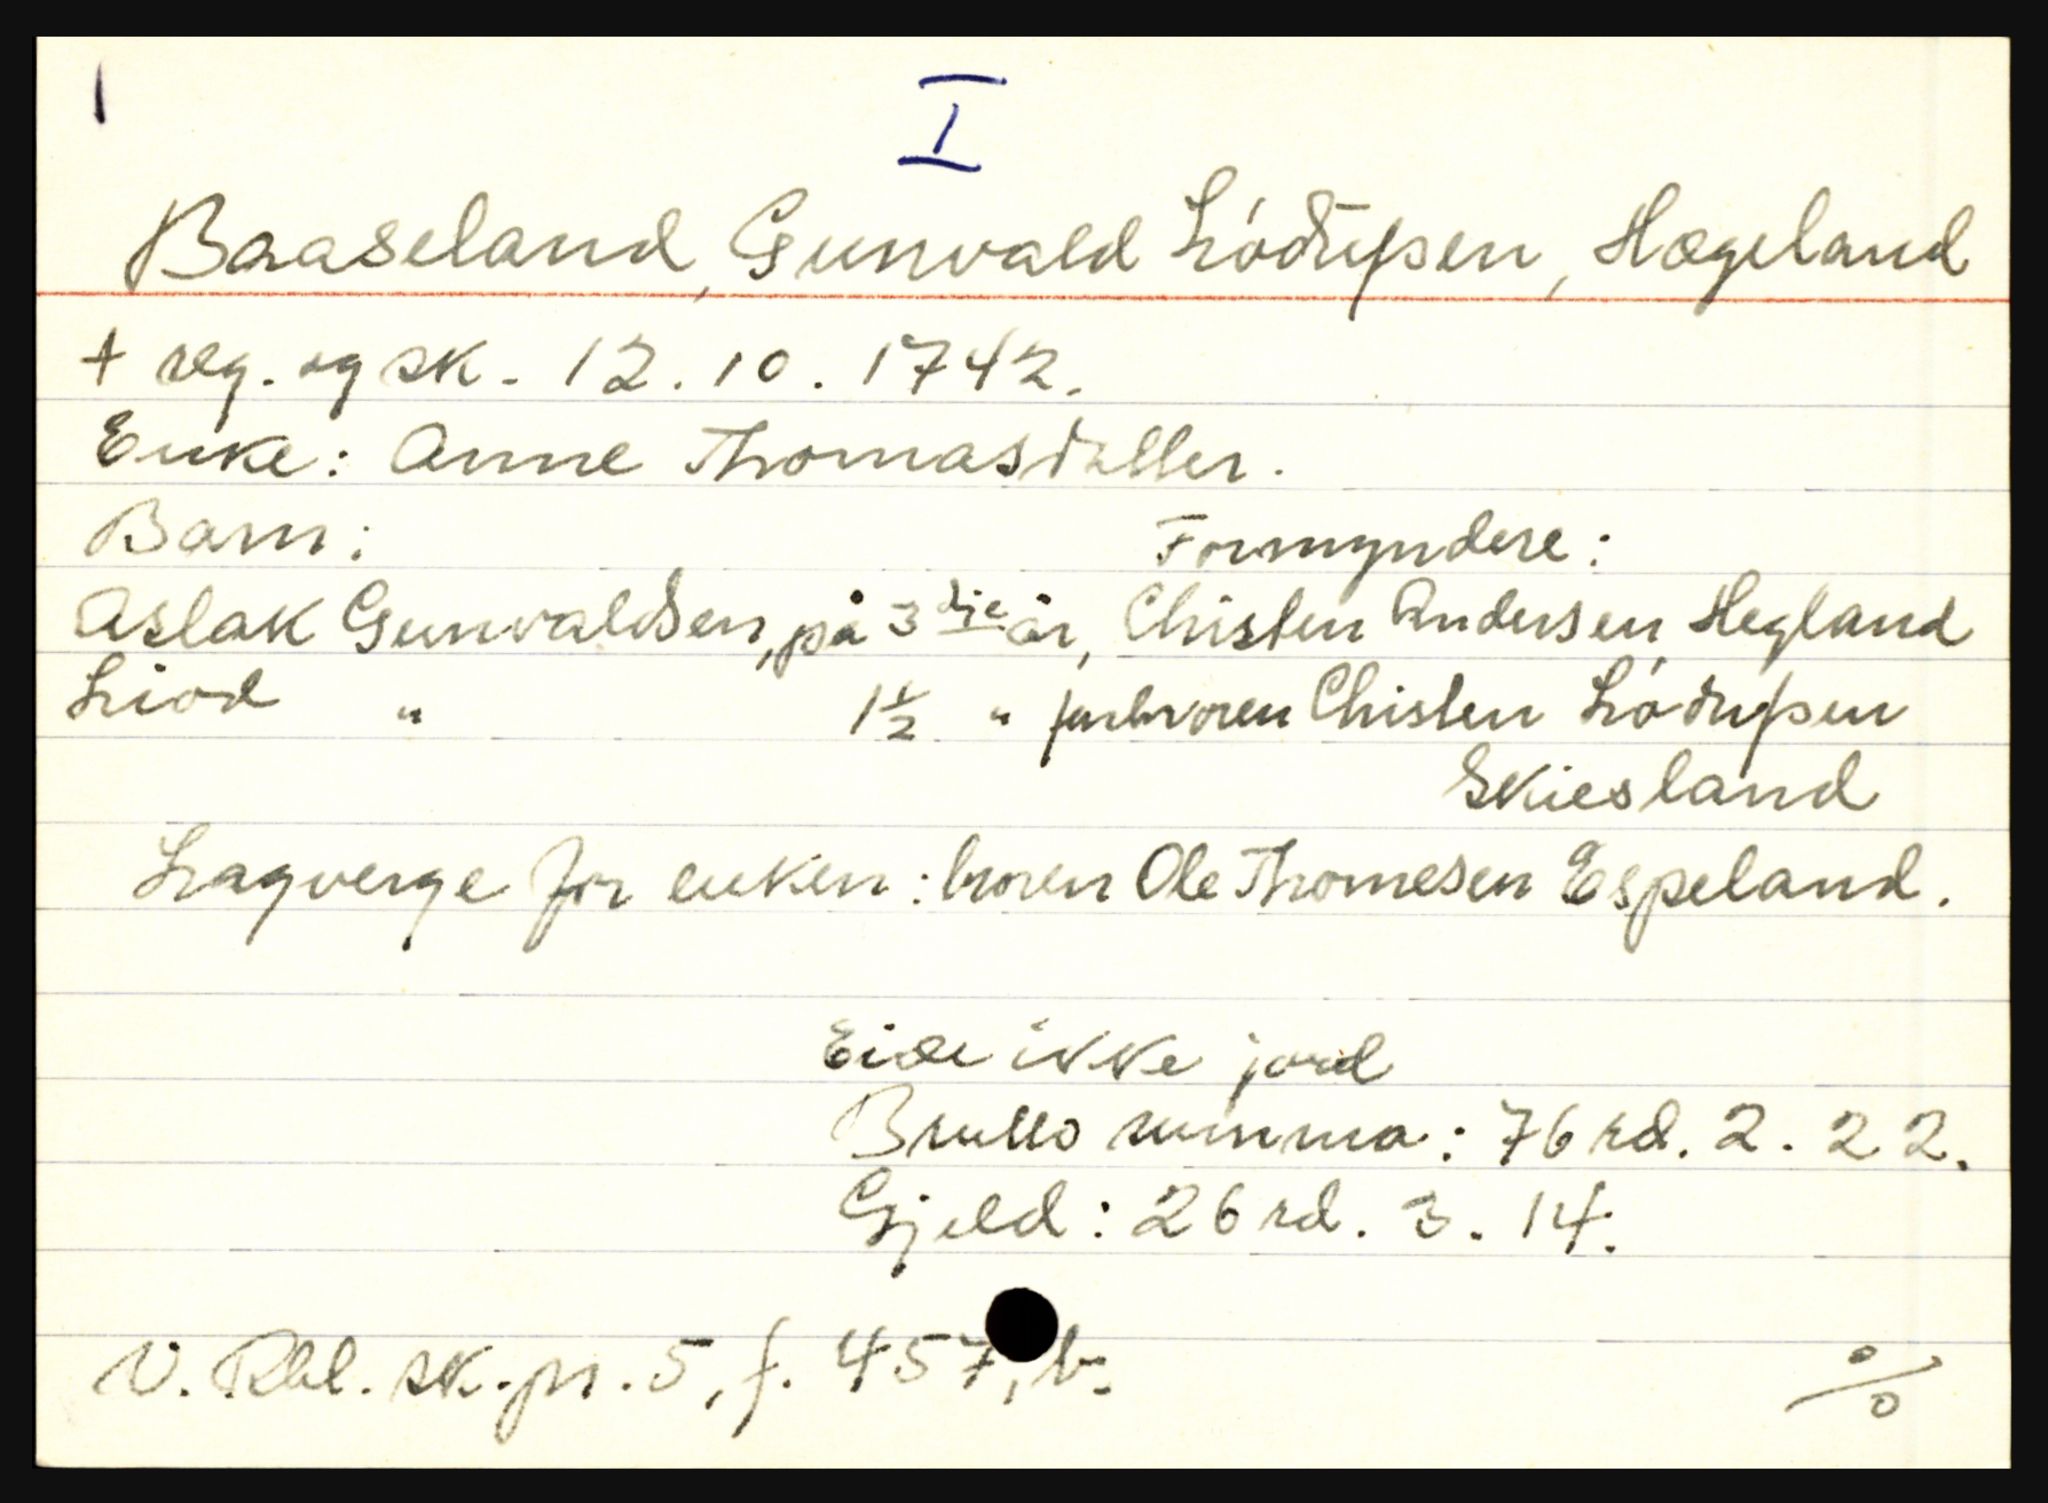 I
Baaseland, Gunvald Liødufsen, Hægeland
+ reg. og sk. 12.10.1742.
Enke: Anne Thomasdatter.
Barn: Formyndere:
Aslak Gunvaldsen, på 3die år, Christen Andersen Hegland
Liod " 1½ " farbroren Christen Liødufsen
Skiesland
Lagverge for enken: broren Ole Thomesen Espeland.
Eide ikke jord
Brutto summa: 76 rd. 2. 22.
Gjeld: 26 rd. 3. 14.
V. Rbl. sk.pr. 5, f. 457, b.